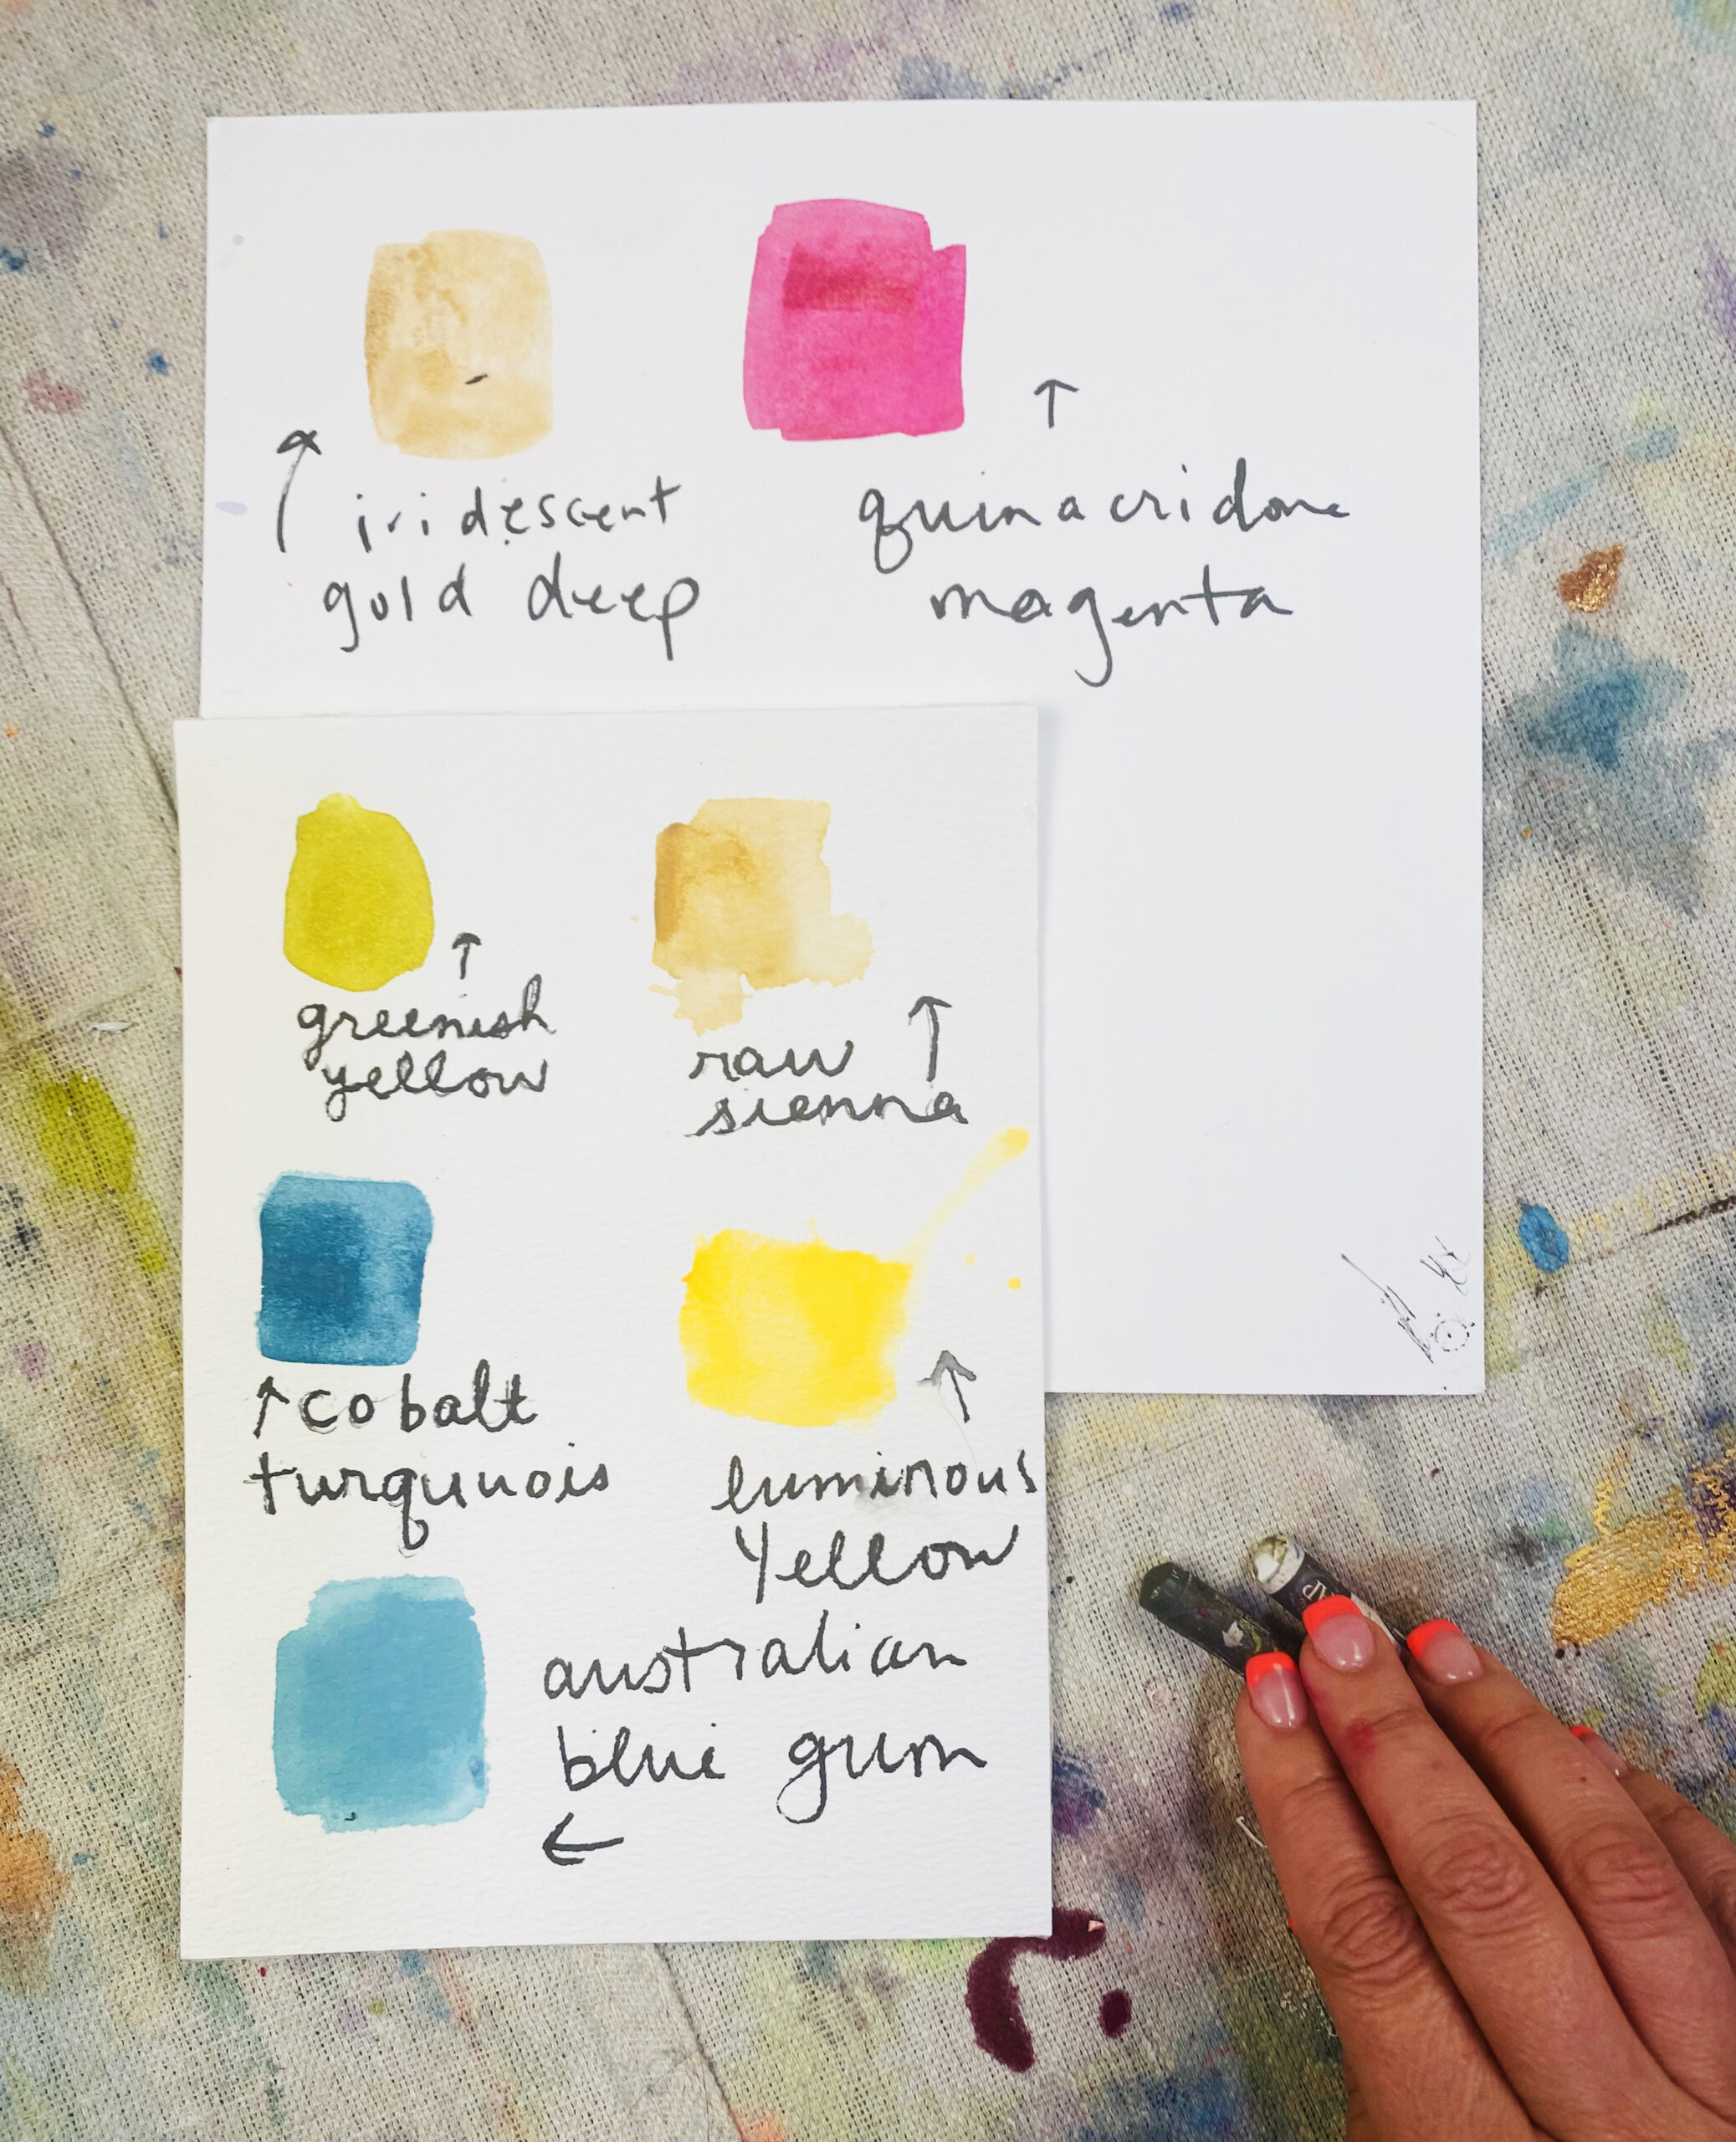 iridescent
gold deep
quinacridone
magenta
greenish
yellow
raw
sienna
cobalt
turquuois
luminous
yellow
australian
blue gum